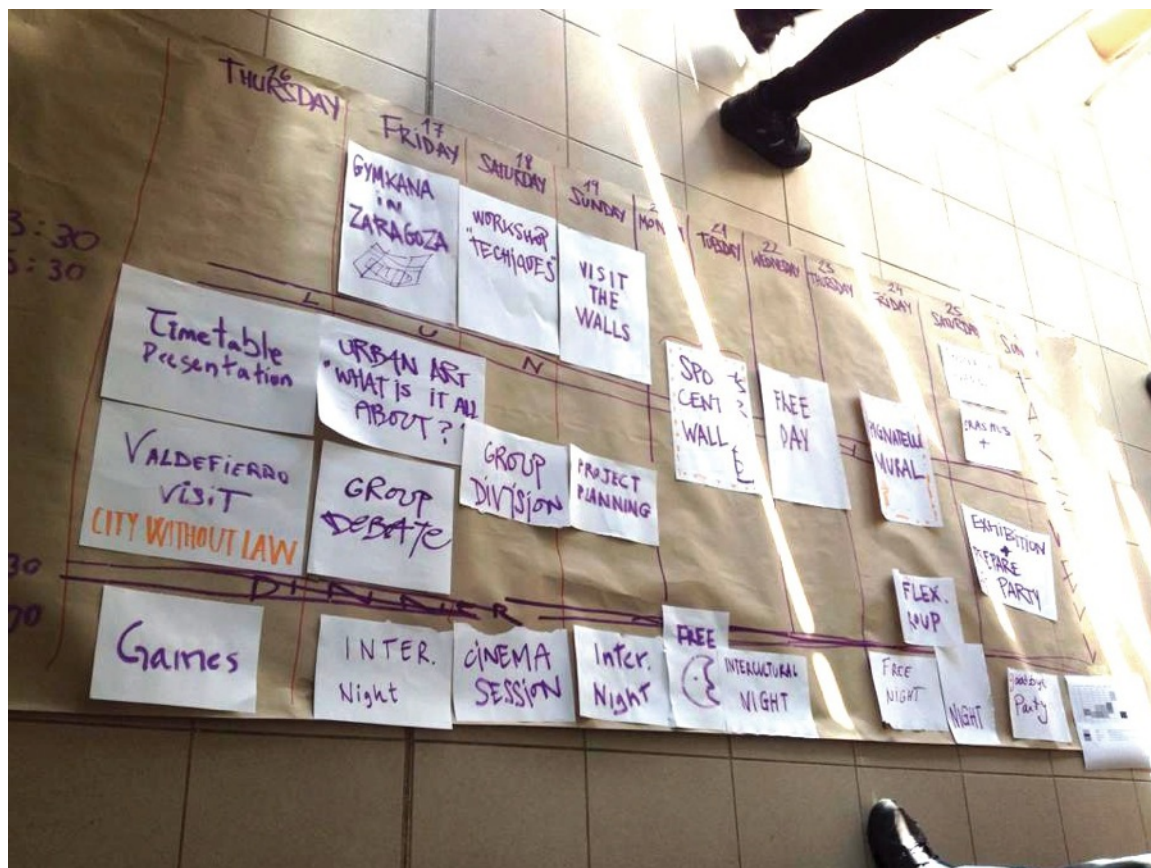 16
THURSDAY
17
FRIDAY
18
SATURDAY
19
SUNDAY
2
MOND
21
TUESDAY
22
WEDNESDAY
23
THURSDAY
24
FRIDAY
25
SATURDAY
SUN
3:30
5:30
GYMKANA
in
ZARAGOZA
WORKSHOP
"TECHIQUES"
VISIT
THE
WALLS
L U N
Timetable
Presentation
URBAN ART
"WHAT IS IT ALL
ABOUT?"
SPO
CENT
WALL
FREE
DAY
PIGNATELLI
MURAL
ERASMUS
+
VALDEFIERRO
VISIT
CITY WITHOUT LAW
GROUP
DEBATE
GROUP
DIVISION
PROJECT
PLANNING
EXHIBITION
+
PREPARE
PARTY
30
DINNER
00
FLEX.
ROUP
Games
INTER.
Night
CINEMA
SESSION
Inter.
Night
FREE
INTERCULTURAL
NIGHT
FREE
NIGHT
NIGHT
Goodbye
Party